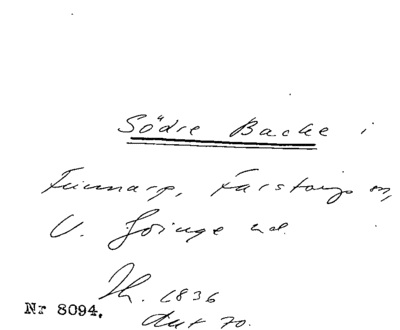 Södre Backe i
Finnarp, Farstorps sn,
V. Göinge hd.
Th. 1836
Nr 8094. dat 70.